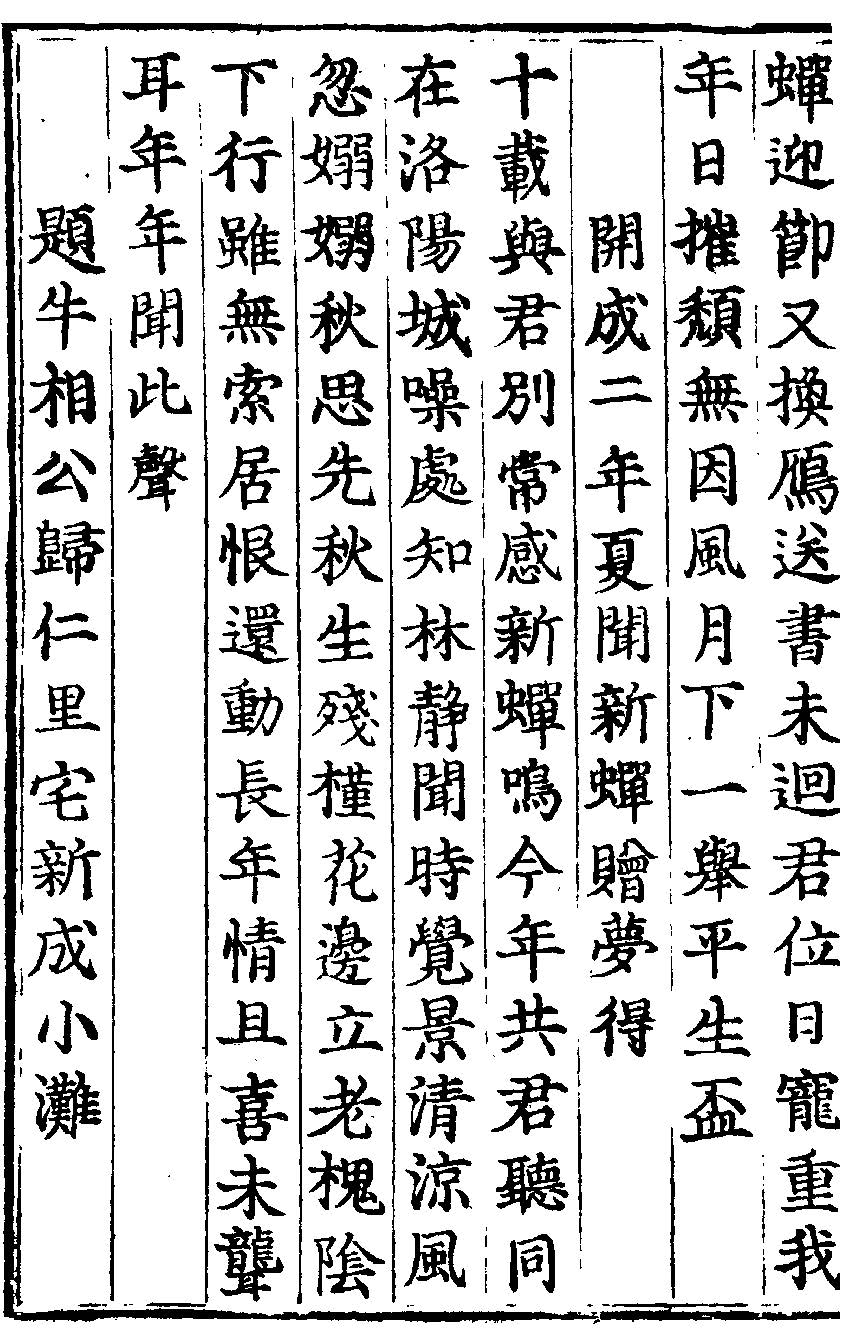 蟬迎節又換鴈送書未迴君位日寵重我
年日摧頽無因風月下一舉平生盃
開成二年夏聞新蟬贈夢得
十載與君別常感新蟬鳴今年共君聽同
在洛陽城噪處知林静聞時覺景清涼風
忽嫋嫋秋思先秋生殘槿花邊立老槐陰
下行雖無索居恨還動長年情且喜未聾
耳年年聞此聲
題牛相公歸仁里宅新成小灘